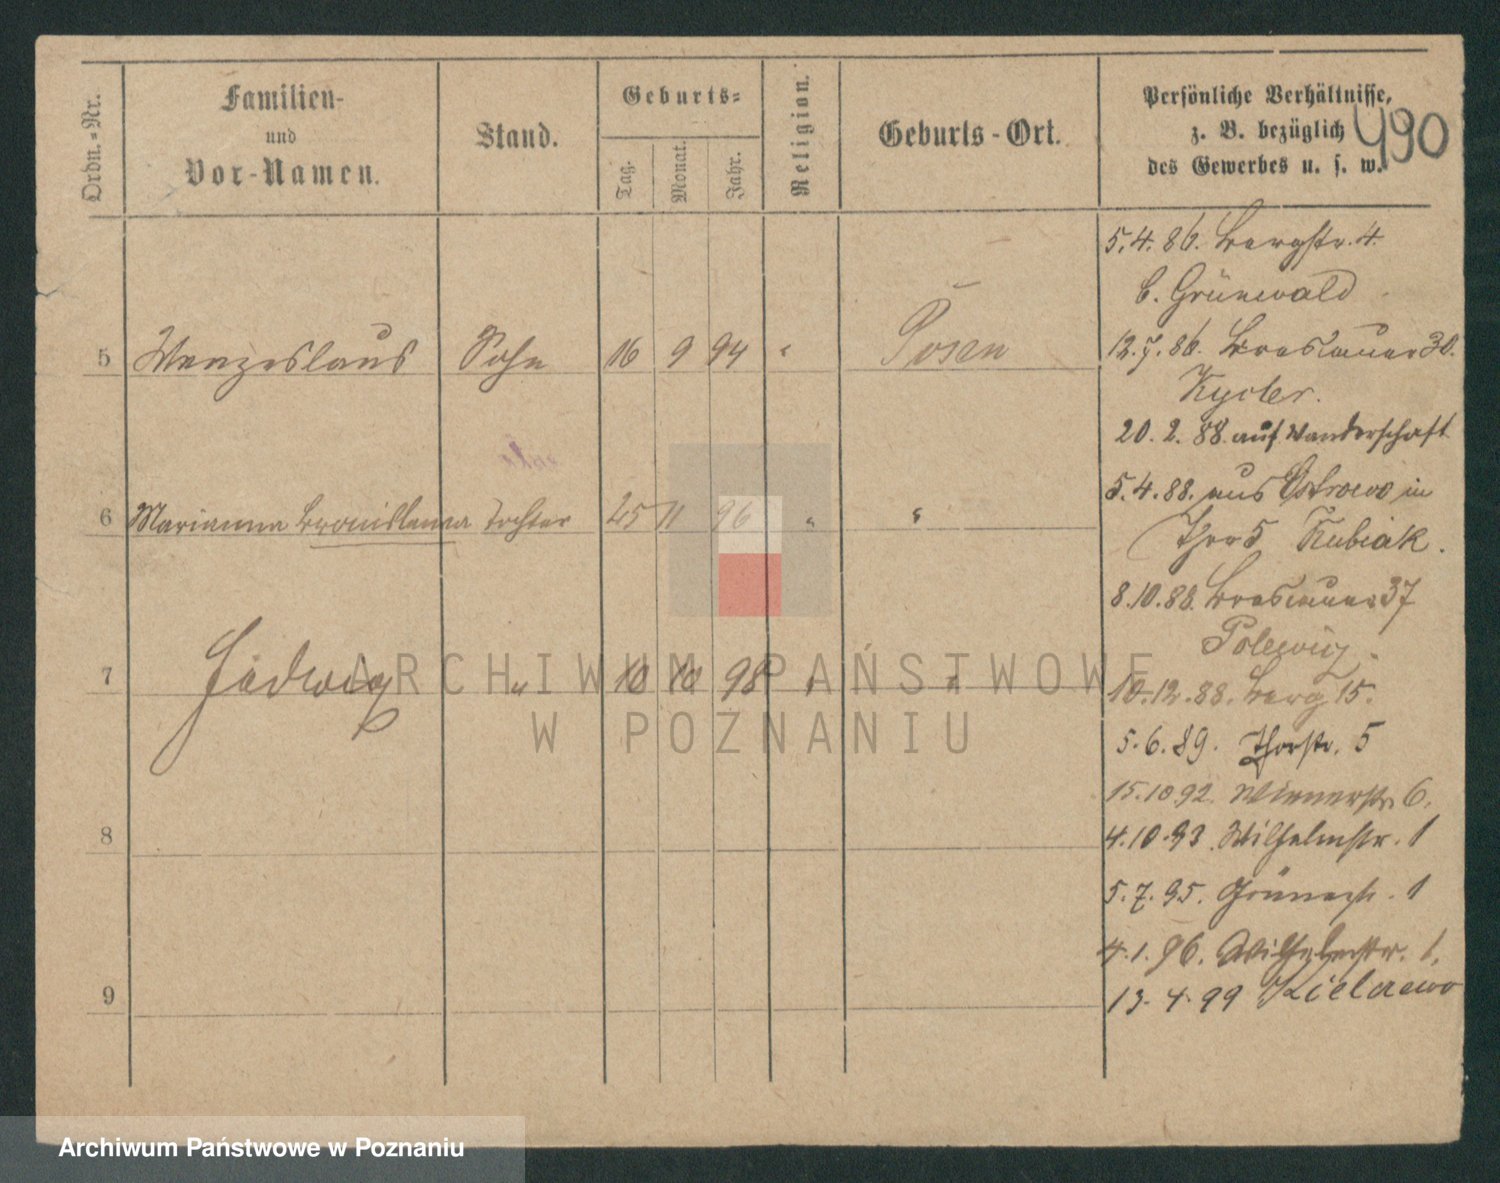 Ordn.=Nr.
Familien-
und
Vor-Namen.
Stand.
Geburts=
Tag.
Monat.
Jahr.
Religion.
Geburts-Ort.
Persönliche Verhältnisse,
z. B. bezüglich
des Gewerbes u. s. w.
490
5 Wenzeslaus Sohn 16 9 94 " Posen
6 Marianna Bronislawa Tochter 25 11 96 " "
7 Hedwig " 10 10 98 " "
8
9
5.4.86. Bergstr. 4.
b. Grünwald
12.7.86. Breslauer 30.
Kycler.
20.2.88. auf Wanderschaft
5.4.88. aus Ostrowo in
Thor 5 Kubiak.
8.10.88. Breslauer 37
Polewicz.
10.12.88. Berg 15.
5.6.89. Thorstr. 5
15.10.92. Wienerstr. 6.
4.10.93. Wilhelmstr. 1
5.7.95. Grünestr. 1
4.1.96. Wilhelmstr. 1.
13.4.99 Kielcewo
ARCHIWUM PAŃSTWOWE
W POZNANIU
Archiwum Państwowe w Poznaniu